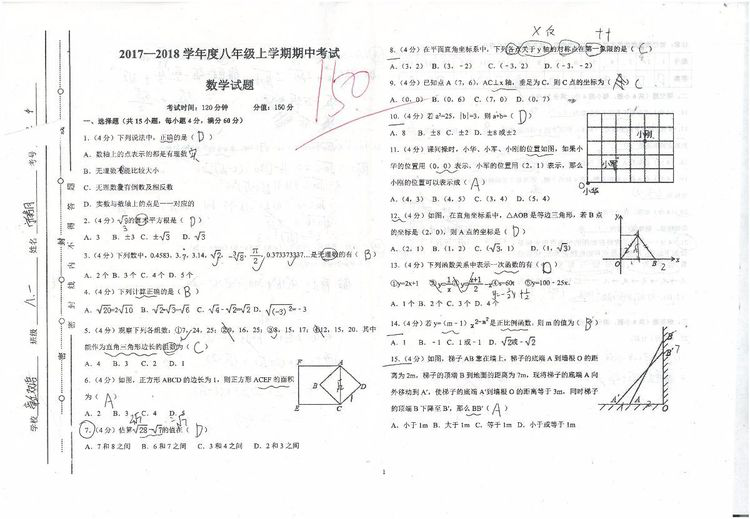 2017—2018 学年度八年级上学期期中考试
数学试题
150
考试时间：120 分钟 分值：150 分
一、选择题（共 15 小题，每小题 4 分，满分 60 分）
1.（4 分）下列说法中，正确的是（ D ）
A．数轴上的点表示的都是有理数
B．无理数不能比较大小
C．无理数没有倒数及相反数
D．实数与数轴上的点是一一对应的
2.（4 分）√9的算术平方根是（ D ）
3
A．3 B．±3 C．±√3 D．√3
3.（4 分）下列数中，0.4583，3.7，3.14，√2，-∛8，π/2，0.373373337…是无理数的有（ B ）
A．2 个 B．3 个 C．4 个 D．5 个
4.（4 分）下列计算正确的是（ B ）
A．√20=2√10 B．√2×√3=√6 C．√4－√2=√2 D．√(-3)²=－3
5.（4 分）观察下列各组数：①7，24，25；②9，16，25；③8，15，17；④12，15，20．其中
能作为直角三角形边长的组数为（ C ）
A．4 B．3 C．2 D．1
6.（4 分）如图，正方形 ABCD 的边长为 1，则正方形 ACEF 的面积
为（ A ）
A．2 B．3 C．4 D．5
F A B D E C
7.（4 分）估算√28－√7的值在（ D ）
A．7 和 8 之间 B．6 和 7 之间 C．3 和 4 之间 D．2 和 3 之间
8.（4 分）在平面直角坐标系中，下列各点关于 y 轴的对称点在第一象限的是（ C ）
A．（3，2） B．（3，－2） C．（－3，2） D．（－3，－2）
9.（4 分）已知点 A（7，6），AC⊥x 轴，垂足为 C，则 C 点的坐标为（ ） C
A．（0，0） B．（6，0） C．（7，0） D．（0，7）
10.（4 分）若 a²=25，|b|=3，则 a+b=（ D ）
A．8 B．±8 C．±2 D．±8 或±2
11.（4 分）课间操时，小华、小军、小刚的位置如图，如果小
华的位置用（0，0）表示，小军的位置用（2，1）表示，那么
小刚的位置可以表示成（ A ）
A．（4，3） B．（4，5） C．（3，4） D．（5，4）
小刚
小军
小华
12.（4 分）如图，在直角坐标系中，△AOB 是等边三角形，若 B 点
的坐标是（2，0），则 A 点的坐标是（ D ）
A．（2，1） B．（1，2） C．（√3，1） D．（1，√3）
y A O B 2 x
13.（4 分）下列函数关系中表示一次函数的有（ D ）
A．1 个 B．2 个 C．3 个 D．4 个
14.（4 分）若 y=（m－1）x^(2-m²)是正比例函数，则 m 的值为（ B ）
A．1 B．－1 C．1 或－1 D．√2或－√2
15.（4 分）如图，梯子 AB 靠在墙上，梯子的底端 A 到墙根 O 的距
离为 2m，梯子的顶端 B 到地面的距离为 7m，现将梯子的底端 A 向
外移动到 A′，使梯子的底端 A′到墙根 O 的距离等于 3m，同时梯子
的顶端 B 下降至 B′，那么 BB′（ A ）
A．小于 1m B．大于 1m C．等于 1m D．小于或等于 1m
B B′ 7 A′ A 2 O
考号
姓名
班级
学校
1